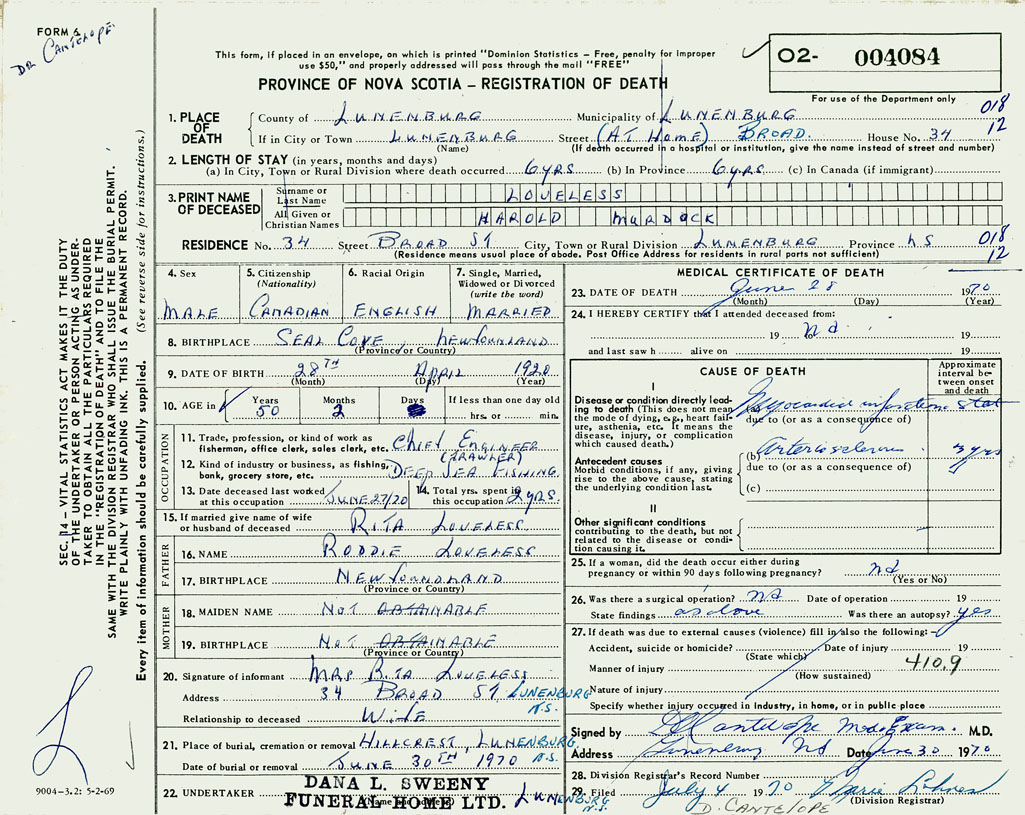 FORM 6
DR. CANTELOPE
This form, if placed in an envelope, on which is printed "Dominion Statistics – Free, penalty for improper
use $50," and properly addressed will pass through the mail "FREE"
PROVINCE OF NOVA SCOTIA – REGISTRATION OF DEATH
02- 004084
For use of the Department only
018
12
1. PLACE OF DEATH
County of LUNENBURG Municipality of LUNENBURG
If in City or Town LUNENBURG Street (AT HOME) BROAD. House No. 34
(Name) (If death occurred in a hospital or institution, give the name instead of street and number)
2. LENGTH OF STAY (in years, months and days)
(a) In City, Town or Rural Division where death occurred 6 YRS (b) In Province 6 YRS. (c) In Canada (if immigrant)
3. PRINT NAME OF DECEASED
Surname or Last Name LOVELESS
All Given or Christian Names HAROLD MURDOCK
RESIDENCE No. 34 Street BROAD ST City, Town or Rural Division LUNENBURG Province NS
(Residence means usual place of abode. Post Office Address for residents in rural parts not sufficient)
018
12
4. Sex
MALE
5. Citizenship
(Nationality)
CANADIAN
6. Racial Origin
ENGLISH
7. Single, Married,
Widowed or Divorced
(write the word)
MARRIED
8. BIRTHPLACE SEAL COVE NEWFOUNDLAND
(Province or Country)
9. DATE OF BIRTH 28TH APRIL 1920
(Month) (Day) (Year)
10. AGE in
Years 50
Months 2
Days
If less than one day old
hrs. or min.
OCCUPATION
11. Trade, profession, or kind of work as
fisherman, office clerk, sales clerk, etc. CHIEF ENGINEER
(TRAWLER)
12. Kind of industry or business, as fishing,
bank, grocery store, etc. DEEP SEA FISHING
13. Date deceased last worked
at this occupation JUNE 27/70
14. Total yrs. spent in
this occupation 2 YRS.
15. If married give name of wife
or husband of deceased RITA LOVELESS
FATHER
16. NAME RODDIE LOVELESS
17. BIRTHPLACE NEWFOUNDLAND
(Province or Country)
MOTHER
18. MAIDEN NAME NOT OBTAINABLE
19. BIRTHPLACE NOT OBTAINABLE
(Province or Country)
20. Signature of informant MRS RITA LOVELESS
Address 34 BROAD ST LUNENBURG
N.S.
Relationship to deceased WIFE
21. Place of burial, cremation or removal HILLCREST, LUNENBURG
N.S.
Date of burial or removal JUNE 30TH 1970
22. UNDERTAKER DANA L. SWEENY
FUNERAL HOME LTD. LUNENBURG
N.S.
(Name and Address)
MEDICAL CERTIFICATE OF DEATH
23. DATE OF DEATH June 28 1970
(Month) (Day) (Year)
24. I HEREBY CERTIFY that I attended deceased from:
19 19
and last saw h alive on 19
CAUSE OF DEATH
Approximate
interval be-
tween onset
and death
I
Disease or condition directly lead-
ing to death (This does not mean
the mode of dying, e.g., heart fail-
ure, asthenia, etc. It means the
disease, injury, or complication
which caused death.)
(a) Myocardial infarction stat
due to (or as a consequence of)
Antecedent causes
Morbid conditions, if any, giving
rise to the above cause, stating
the underlying condition last.
(b) Arteriosclerosis 3 yrs
due to (or as a consequence of)
(c)
II
Other significant conditions
contributing to the death, but not
related to the disease or condi-
tion causing it.
25. If a woman, did the death occur either during
pregnancy or within 90 days following pregnancy?
(Yes or No)
26. Was there a surgical operation? Date of operation 19
State findings as above Was there an autopsy? yes
27. If death was due to external causes (violence) fill in also the following:
Accident, suicide or homicide? Date of injury 19
(State which)
410.9
Manner of injury
(How sustained)
Nature of injury
Specify whether injury occurred in industry, in home, or in public place
Signed by Cantelope Med. Exam. M.D.
Address Lunenburg NS Date June 30 1970
28. Division Registrar's Record Number
29. Filed July 4 1970 Marie Lohnes
(Division Registrar)
D. CANTELOPE
SEC. 14 – VITAL STATISTICS ACT MAKES IT THE DUTY
OF THE UNDERTAKER OR PERSON ACTING AS UNDER-
TAKER TO OBTAIN ALL THE PARTICULARS REQUIRED
IN THE "REGISTRATION OF DEATH" AND TO FILE THE
SAME WITH THE DIVISION REGISTRAR WHO SHALL ISSUE THE BURIAL PERMIT.
WRITE PLAINLY WITH UNFADING INK. THIS IS A PERMANENT RECORD.
Every item of information should be carefully supplied. (See reverse side for instructions.)
9004-3.2: 5-2-69